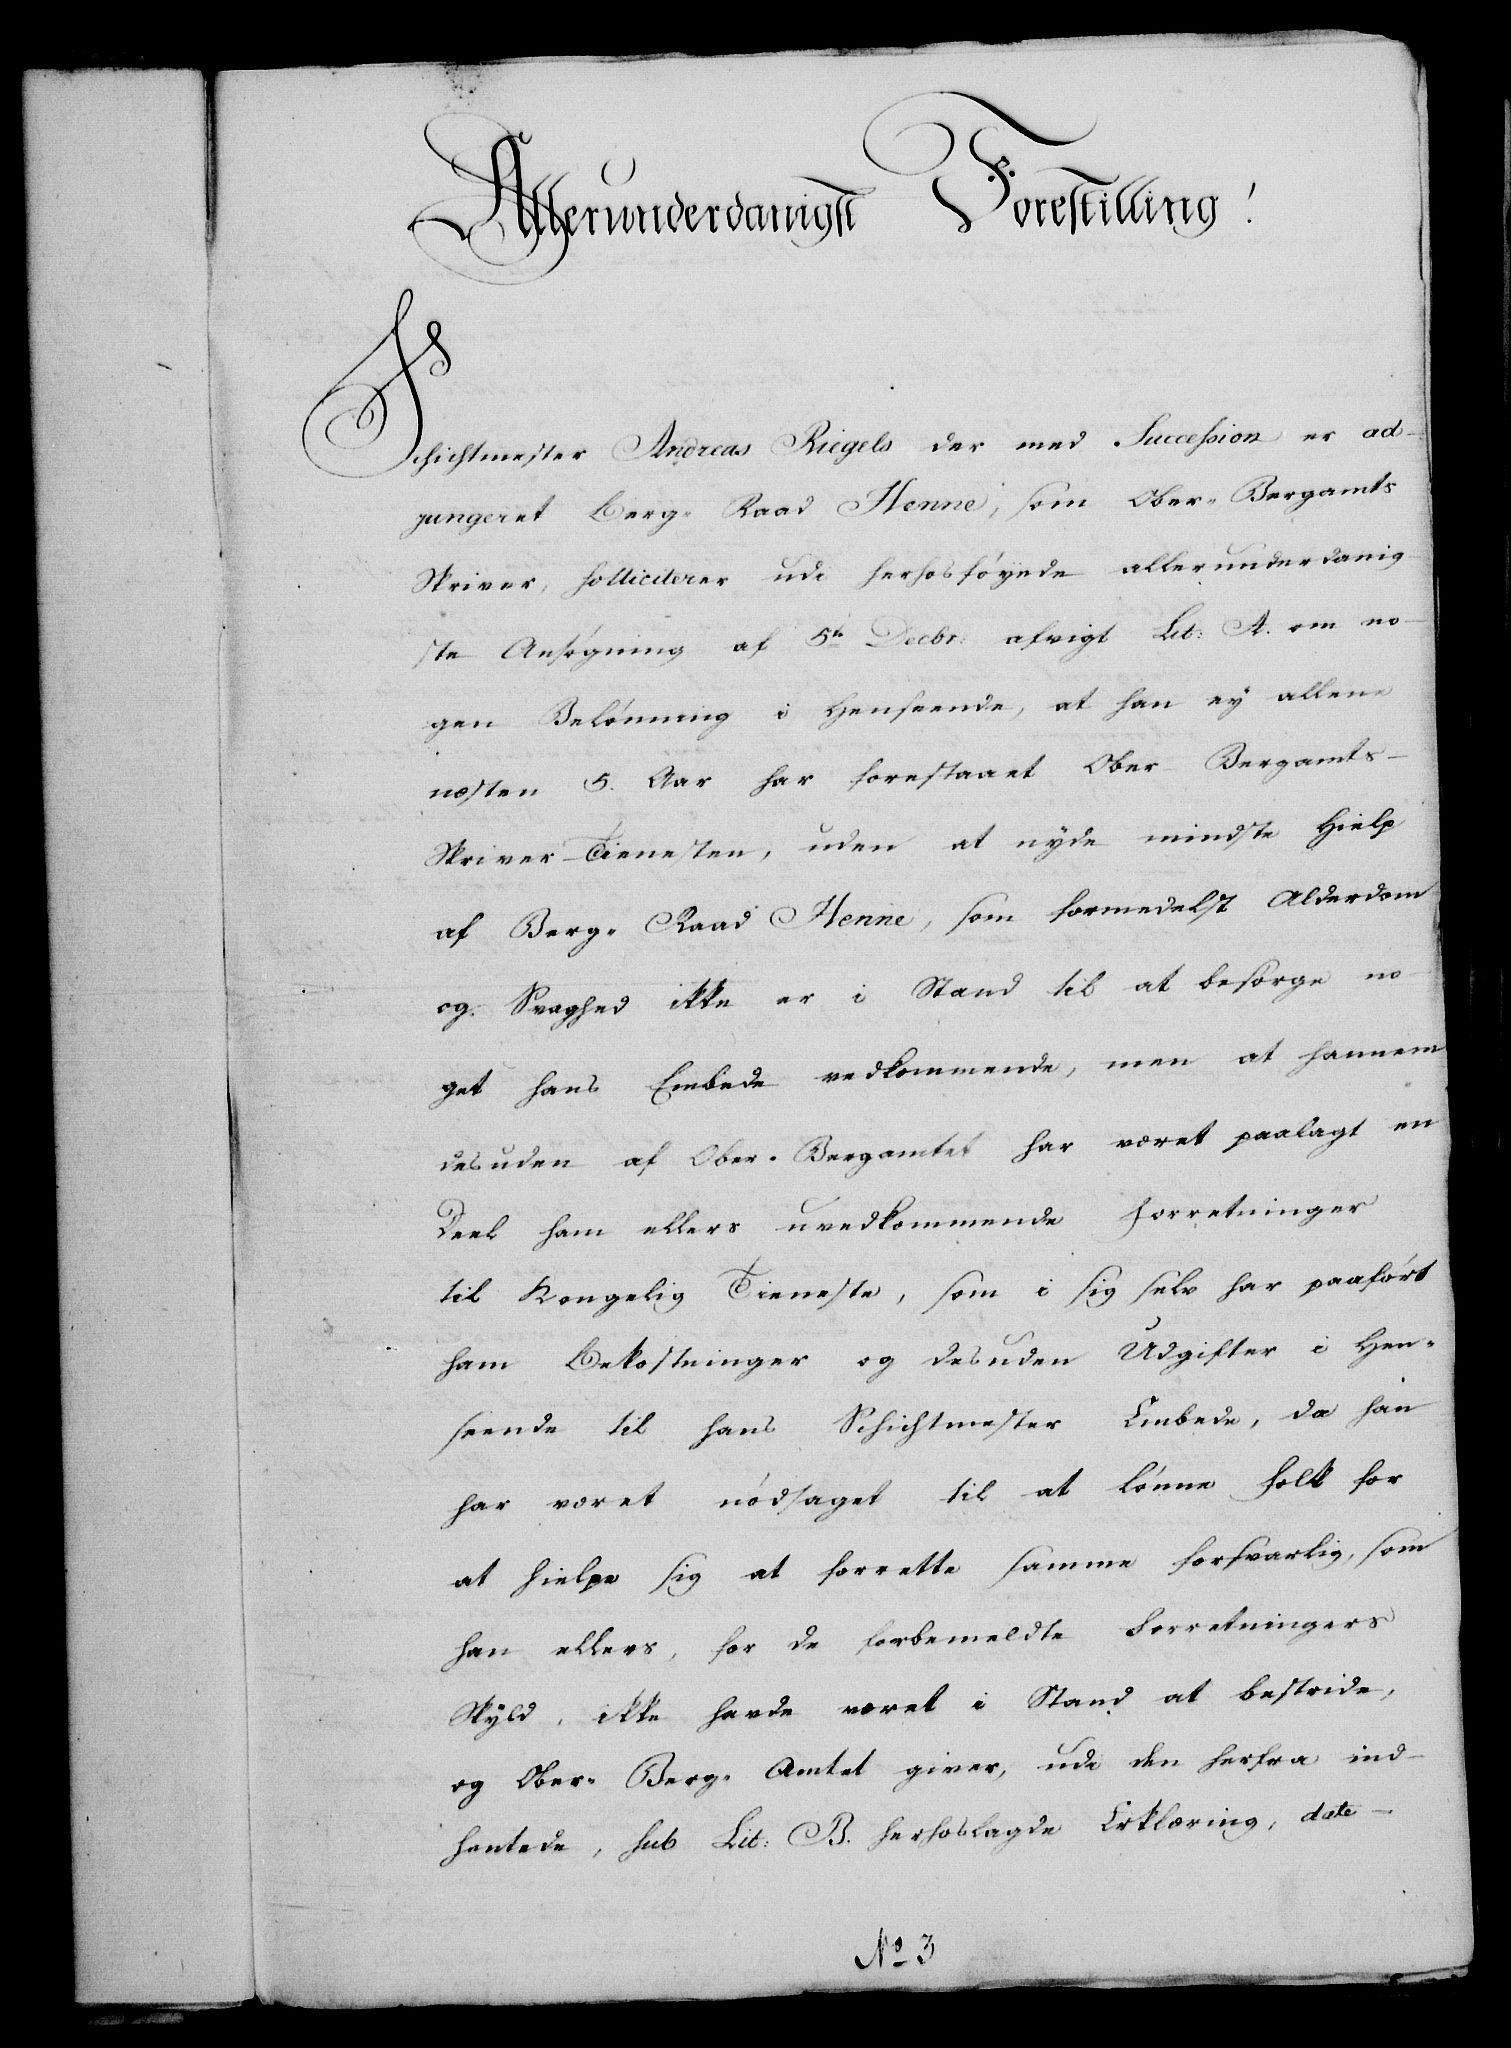 Allerunderdanigst Forestilling!
Schichtmester Andreas Riegels der med Succession er ad-
jungeret Berg- Raad Henne, som Ober- Bergamts
Skriver, solliciterer udi herhosföyede allerunderdanig-
ste Ansøgning af 5te Decbr: afvigt Lit: A. om no-
gen Belönning i Henseende, at han ey allene
næsten 5. Aar har forestaaet Ober Bergamts-
Skriver-Tienesten, uden at nyde mindste Hielp
af Berg- Raad Henne, som formedelst Alderdom
og Svaghed ikke er i Stand til at besørge no-
get hans Embede vedkommende, men at hannem
desuden af Ober- Bergamtet har været paalagt en
Deel ham ellers uvedkommende Forretninger
til Kongelig Tieneste, som i sig selv har paafört
ham Bekostninger og desuden Udgifter i Hen-
seende til hans Schichtmester Embede, da han
har været nödsaget til at lönne Folk for
at hielpe sig at forrette samme forsvarlig, som
han ellers, for de forbemeldte Forretningers
Skyld, ikke havde været i Stand at bestride,
og Ober- Berg- Amtet giver, udi den herfra ind-
hentede, sub Lit: B. herhoslagde Erklæring, date-
No 3